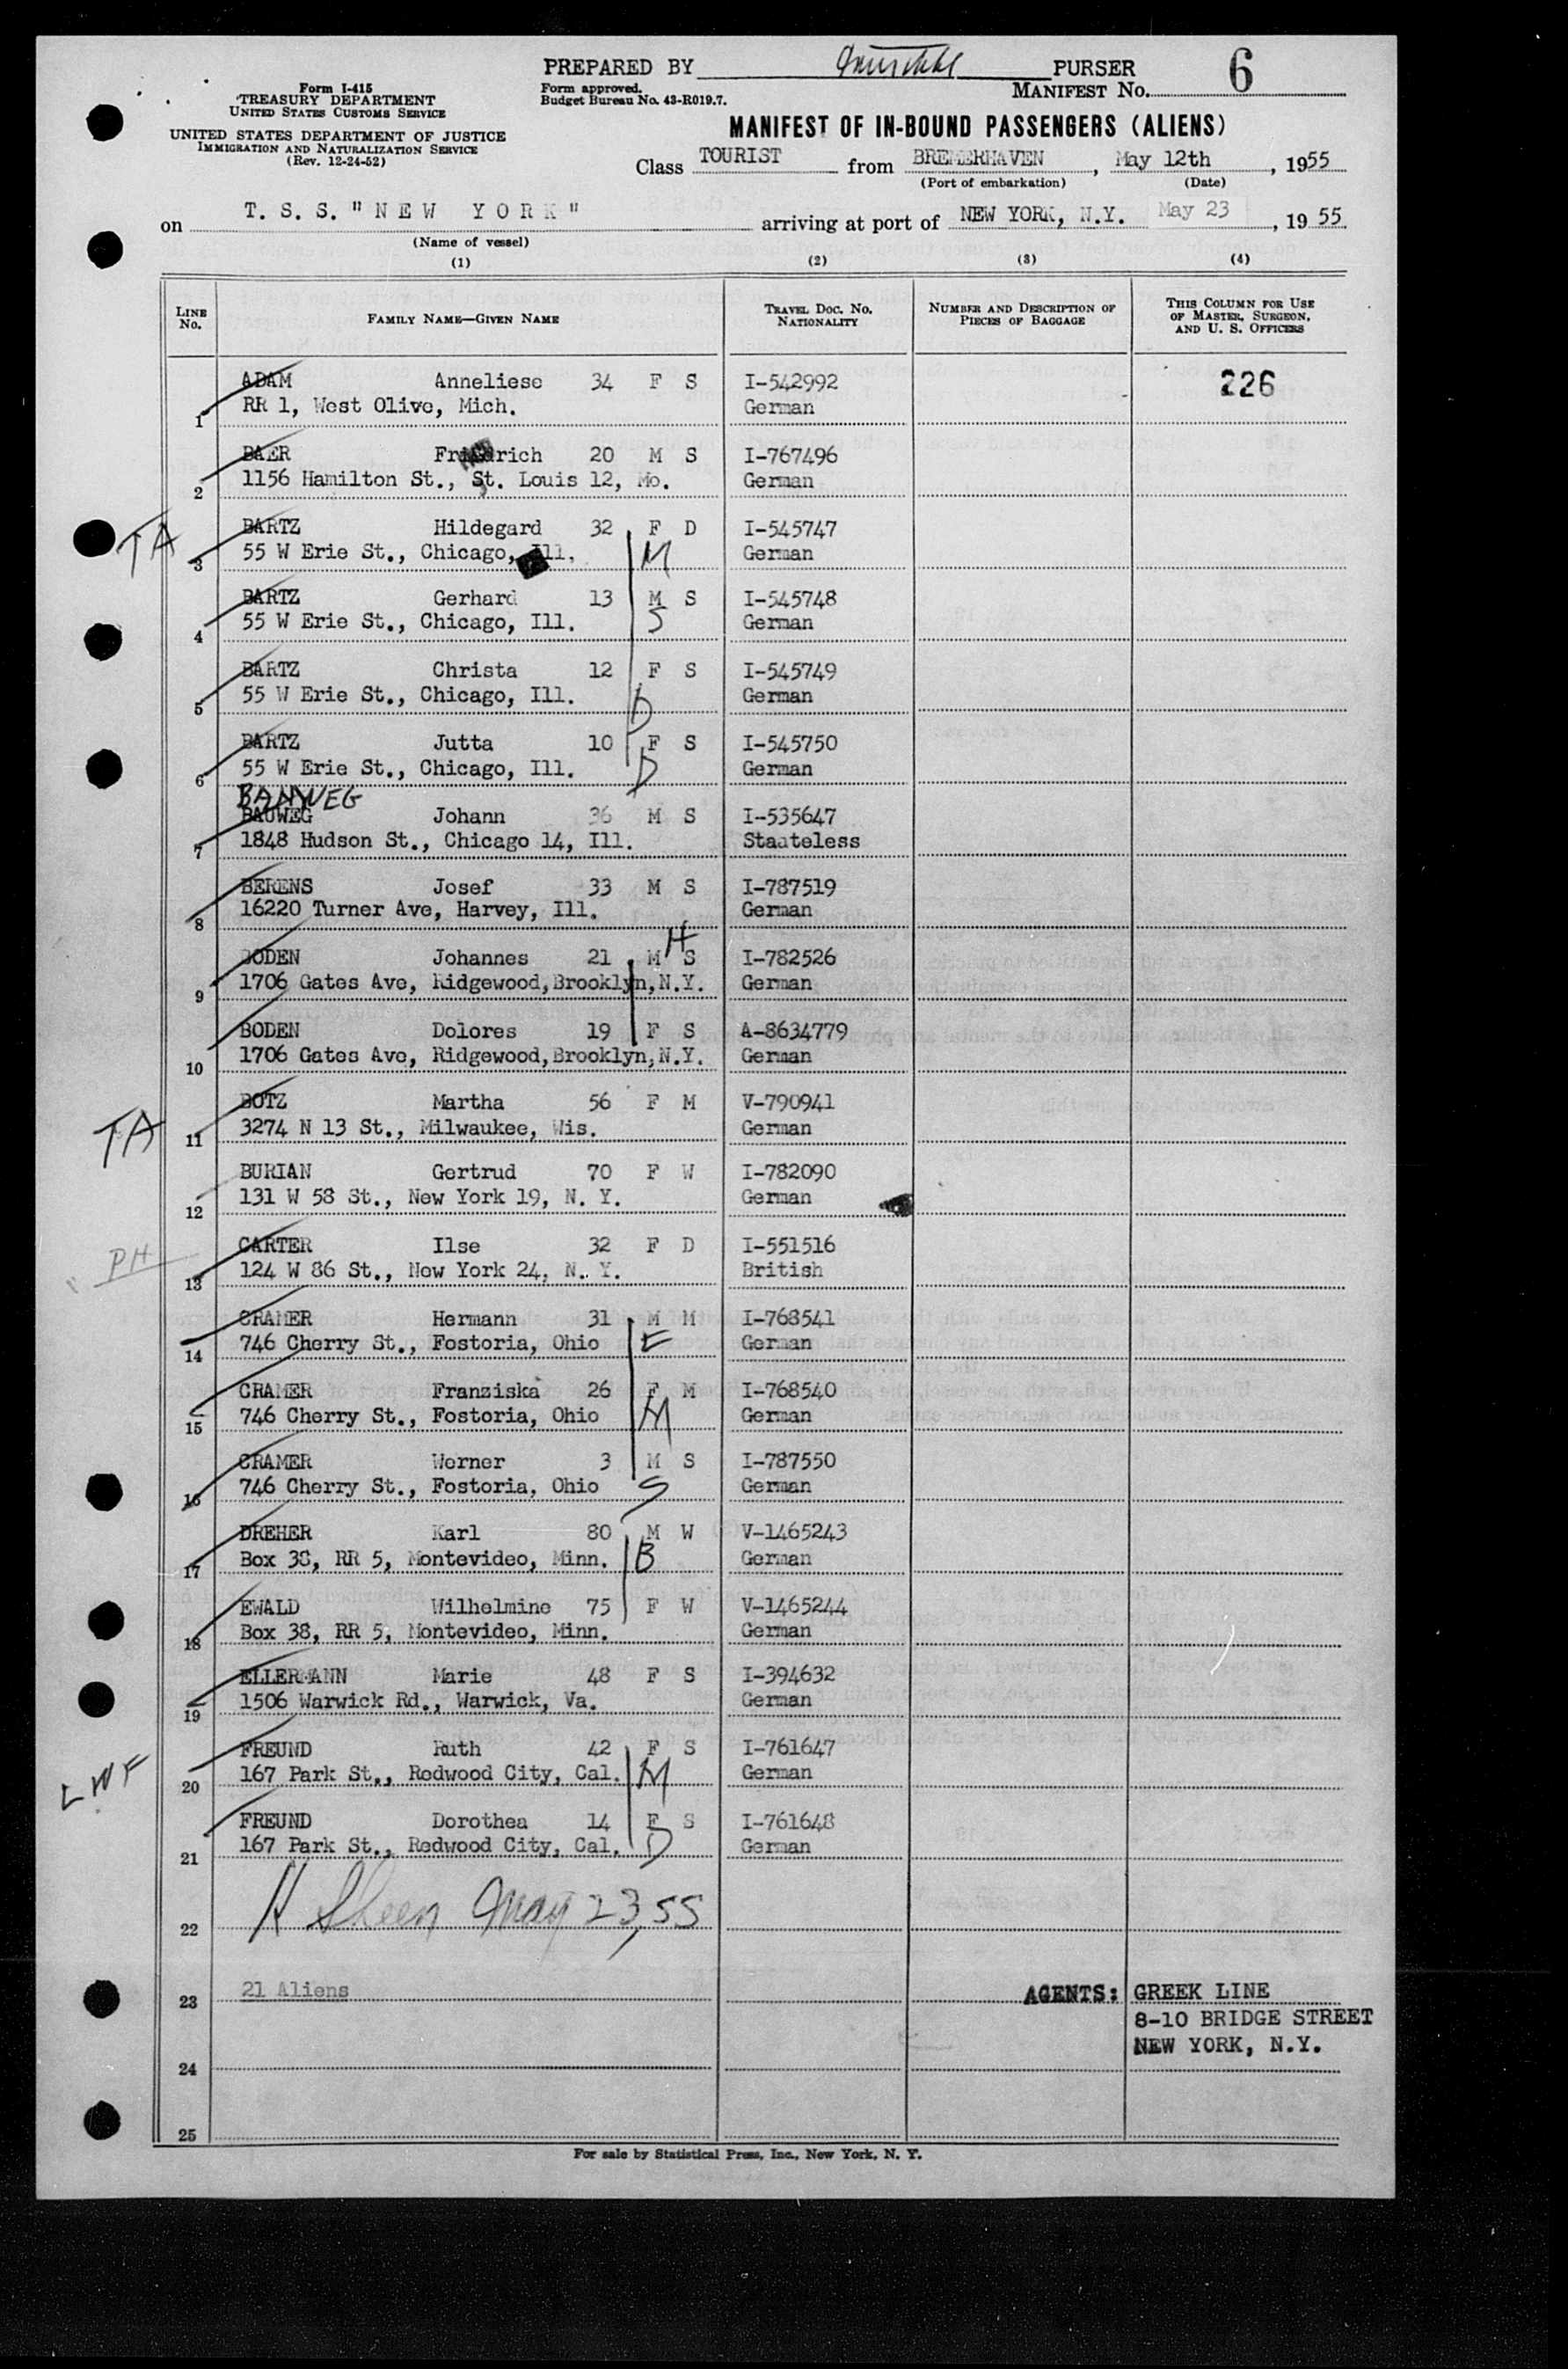 PREPARED BY PURSER 6
Form I-415 Form approved. MANIFEST NO.
TREASURY DEPARTMENT Budget Bureau No. 43-R019.7.
UNITED STATES CUSTOMS SERVICE
UNITED STATES DEPARTMENT OF JUSTICE
IMMIGRATION AND NATURALIZATION SERVICE
(Rev. 12-24-52)
MANIFEST OF IN-BOUND PASSENGERS (ALIENS)
Class TOURIST from BREMERHAVEN, May 12th, 1955
(Port of embarkation) (Date)
on T. S. S. "NEW YORK" arriving at port of NEW YORK, N.Y. May 23, 1955
(Name of vessel)
(1) (2) (3) (4)
LINE No. FAMILY NAME—GIVEN NAME TRAVEL DOC. NO. NATIONALITY NUMBER AND DESCRIPTION OF PIECES OF BAGGAGE THIS COLUMN FOR USE OF MASTER, SURGEON, AND U. S. OFFICERS
ADAM Anneliese 34 F S I-542992 226
1 RR 1, West Olive, Mich. German
BAER Friedrich 20 M S I-767496
2 1156 Hamilton St., St. Louis 12, Mo. German
BARTZ Hildegard 32 F D I-545747
TA 3 55 W Erie St., Chicago, Ill. M German
BARTZ Gerhard 13 M S I-545748
4 55 W Erie St., Chicago, Ill. S German
BARTZ Christa 12 F S I-545749
5 55 W Erie St., Chicago, Ill. D German
BARTZ Jutta 10 F S I-545750
6 55 W Erie St., Chicago, Ill. D German
BAUWEG Johann 36 M S I-535647
7 1848 Hudson St., Chicago 14, Ill. Staateless
BERENS Josef 33 M S I-787519
8 16220 Turner Ave, Harvey, Ill. German
H
BODEN Johannes 21 M S I-782526
9 1706 Gates Ave, Ridgewood,Brooklyn,N.Y. German
BODEN Dolores 19 F S A-8634779
10 1706 Gates Ave, Ridgewood,Brooklyn,N.Y. German
BOTZ Martha 56 F M V-790941
TA 11 3274 N 13 St., Milwaukee, Wis. German
BURIAN Gertrud 70 F W I-782090
12 131 W 58 St., New York 19, N. Y. German
CARTER Ilse 32 F D I-551516
PH 13 124 W 86 St., New York 24, N. Y. British
CRAMER Hermann 31 M M I-768541
14 746 Cherry St., Fostoria, Ohio F German
CRAMER Franziska 26 F M I-768540
15 746 Cherry St., Fostoria, Ohio M German
CRAMER Werner 3 M S I-787550
16 746 Cherry St., Fostoria, Ohio S German
DREHER Karl 80 M W V-1465243
17 Box 38, RR 5, Montevideo, Minn. B German
EWALD Wilhelmine 75 F W V-1465244
18 Box 38, RR 5, Montevideo, Minn. German
ELLERMANN Marie 48 F S I-394632
19 1506 Warwick Rd., Warwick, Va. German
FREUND Ruth 42 F S I-761647
LWF 20 167 Park St., Redwood City, Cal. M German
FREUND Dorothea 14 F S I-761648
21 167 Park St., Redwood City, Cal. D German
22 H Sheen May 23, 55
23 21 Aliens AGENTS: GREEK LINE
8-10 BRIDGE STREET
NEW YORK, N.Y.
24
25
For sale by Statistical Press, Inc., New York, N. Y.